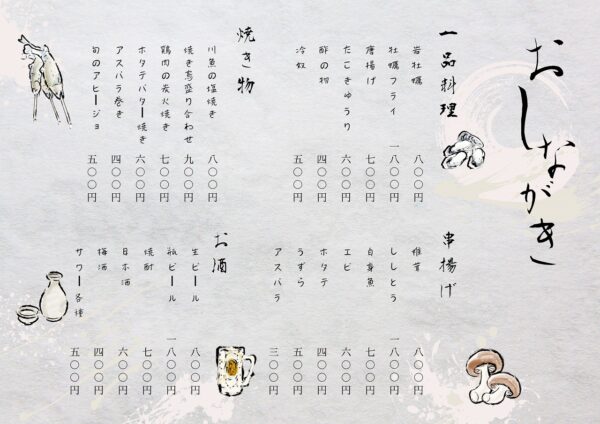 おしながき
一品料理
岩牡蠣 八〇〇円
牡蠣フライ 一八〇〇円
唐揚げ 七〇〇円
たこきゅうり 六〇〇円
酢の物 四〇〇円
冷奴 五〇〇円
焼き物
川魚の塩焼き 八〇〇円
焼き鳥盛り合わせ 九〇〇円
鶏肉の炭火焼き 七〇〇円
ホタテバター焼き 六〇〇円
アスパラ巻き 四〇〇円
旬のアヒージョ 五〇〇円
串揚げ
椎茸 八〇〇円
ししとう 一八〇〇円
白身魚 七〇〇円
エビ 六〇〇円
ホタテ 四〇〇円
うずら 五〇〇円
アスパラ 三〇〇円
お酒
生ビール 八〇〇円
瓶ビール 一八〇〇円
焼酎 七〇〇円
日本酒 六〇〇円
梅酒 四〇〇円
サワー各種 五〇〇円